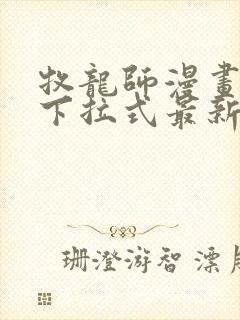 牧龍師漫畫
下拉式最新
珊澄游智 漂